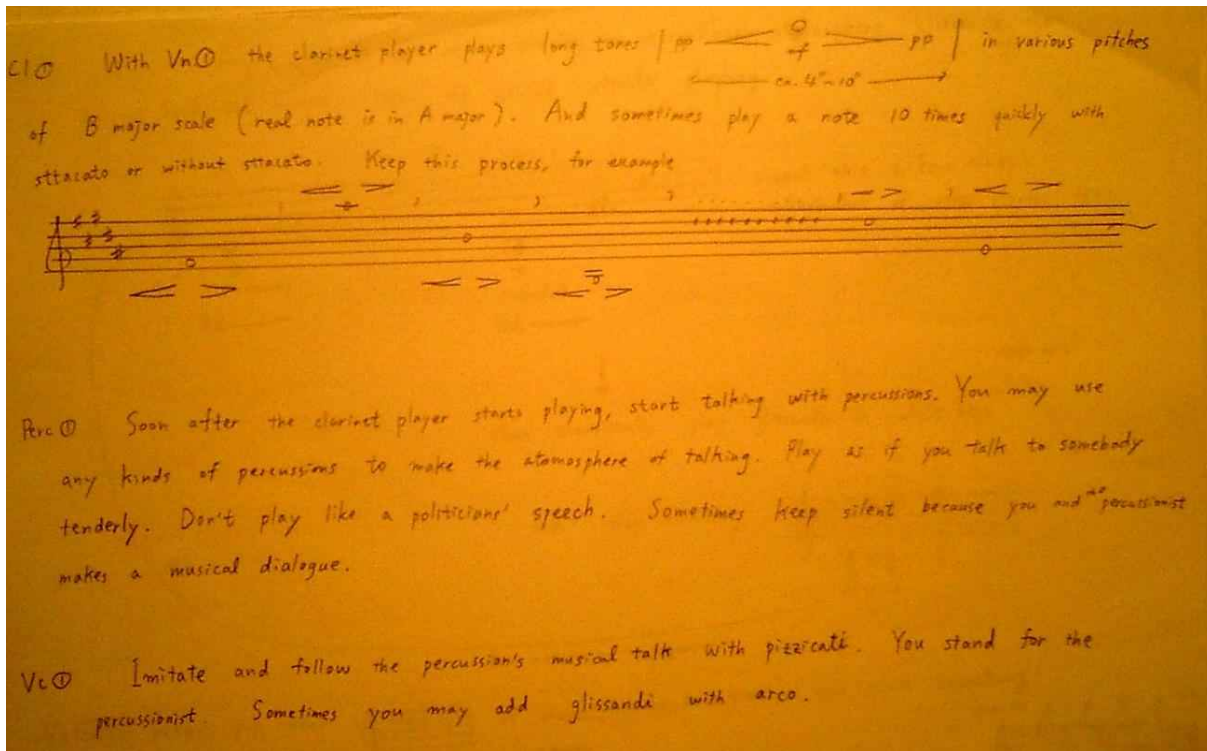 Cl① With Vn.① the clarinet player plays long tones | pp f pp | in various pitches
ca. 4"~10"
of B major scale (real note is in A major). And sometimes play a note 10 times quickly with
sttacato or without sttacato. Keep this process, for example
Perc① Soon after the clarinet player starts playing, start talking with percussions. You may use
any kinds of percussions to make the atomosphere of talking. Play as if you talk to somebody
tenderly. Don't play like a politicians' speech. Sometimes keep silent because you and percussionist
makes a musical dialogue.
Vc① Imitate and follow the percussion's musical talk with pizzicati. You stand for the
percussionist. Sometimes you may add glissandi with arco.